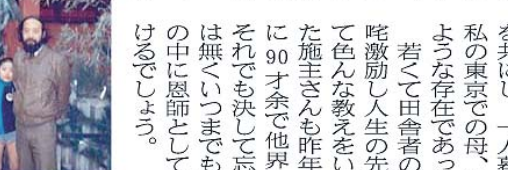 を共にし、一人暮
私の東京での母、
ような存在であっ
若くて田舎者の
咤激励し人生の先
て色んな教えをい
た施主さんも昨年
に90才余で他界
それでも決して忘
は無くいつまでも
の中に恩師として
けるでしょう。